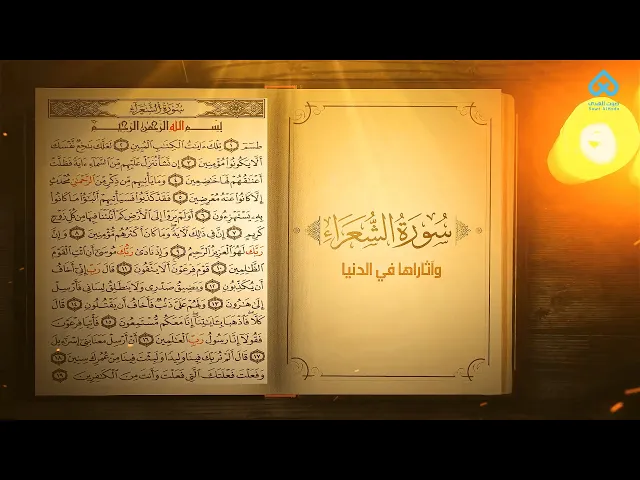 صوت الهدى
سُورَةُ الشُّعَرَاءِ
بِسْمِ اللَّهِ الرَّحْمَٰنِ الرَّحِيمِ
طسٓمٓ ١ تِلْكَ ءَايَٰتُ ٱلْكِتَٰبِ ٱلْمُبِينِ ٢ لَعَلَّكَ بَٰخِعٌ نَّفْسَكَ
أَلَّا يَكُونُوا۟ مُؤْمِنِينَ ٣ إِن نَّشَأْ نُنَزِّلْ عَلَيْهِم مِّنَ ٱلسَّمَآءِ ءَايَةً فَظَلَّتْ
أَعْنَٰقُهُمْ لَهَا خَٰضِعِينَ ٤ وَمَا يَأْتِيهِم مِّن ذِكْرٍ مِّنَ ٱلرَّحْمَٰنِ مُحْدَثٍ
إِلَّا كَانُوا۟ عَنْهُ مُعْرِضِينَ ٥ فَقَدْ كَذَّبُوا۟ فَسَيَأْتِيهِمْ أَنۢبَٰٓؤُا۟ مَا كَانُوا۟
بِهِۦ يَسْتَهْزِءُونَ ٦ أَوَلَمْ يَرَوْا۟ إِلَى ٱلْأَرْضِ كَمْ أَنۢبَتْنَا فِيهَا مِن كُلِّ زَوْجٍ
كَرِيمٍ ٧ إِنَّ فِى ذَٰلِكَ لَءَايَةً وَمَا كَانَ أَكْثَرُهُم مُّؤْمِنِينَ ٨ وَإِنَّ
رَبَّكَ لَهُوَ ٱلْعَزِيزُ ٱلرَّحِيمُ ٩ وَإِذْ نَادَىٰ رَبُّكَ مُوسَىٰٓ أَنِ ٱئْتِ ٱلْقَوْمَ
ٱلظَّٰلِمِينَ ١٠ قَوْمَ فِرْعَوْنَ أَلَا يَتَّقُونَ ١١ قَالَ رَبِّ إِنِّىٓ أَخَافُ
أَن يُكَذِّبُونِ ١٢ وَيَضِيقُ صَدْرِى وَلَا يَنطَلِقُ لِسَانِى فَأَرْسِلْ
إِلَىٰ هَٰرُونَ ١٣ وَلَهُمْ عَلَىَّ ذَنۢبٌ فَأَخَافُ أَن يَقْتُلُونِ ١٤ قَالَ
كَلَّا فَٱذْهَبَا بِـَٔايَٰتِنَآ إِنَّا مَعَكُم مُّسْتَمِعُونَ ١٥ فَأْتِيَا فِرْعَوْنَ
فَقُولَآ إِنَّا رَسُولُ رَبِّ ٱلْعَٰلَمِينَ ١٦ أَنْ أَرْسِلْ مَعَنَا بَنِىٓ إِسْرَٰٓءِيلَ
١٧ قَالَ أَلَمْ نُرَبِّكَ فِينَا وَلِيدًا وَلَبِثْتَ فِينَا مِنْ عُمُرِكَ سِنِينَ ١٨
وَفَعَلْتَ فَعْلَتَكَ ٱلَّتِى فَعَلْتَ وَأَنتَ مِنَ ٱلْكَٰفِرِينَ ١٩
سُورَةُ الشُّعَرَاءِ
وآثاراها في الدنيا